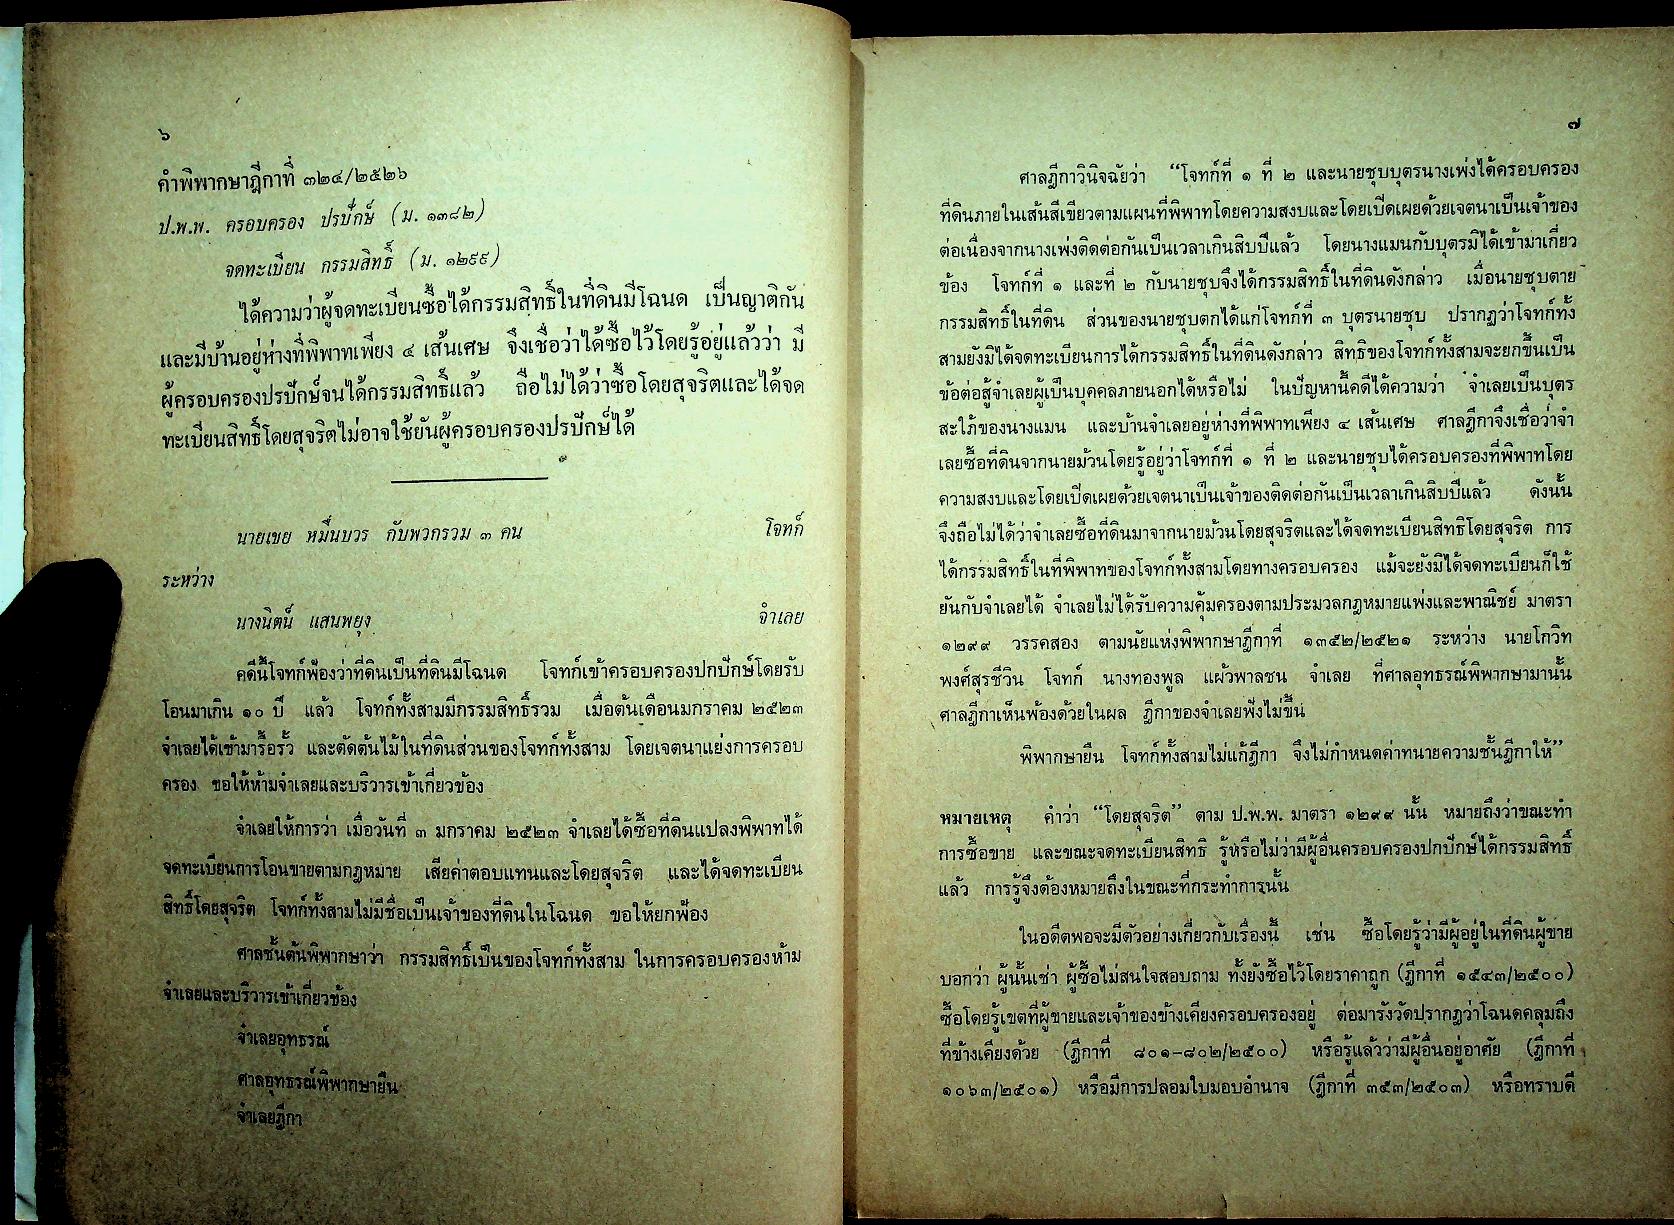 ๖
คำพิพากษาฎีกาที่ ๓๒๔/๒๕๒๖
ป.พ.พ. ครอบครอง ปรปักษ์ (ม. ๑๓๘๒)
จดทะเบียน กรรมสิทธิ์ (ม. ๑๒๙๙)
ได้ความว่าผู้จดทะเบียนซื้อได้กรรมสิทธิ์ในที่ดินมีโฉนด เป็นญาติกัน
และมีบ้านอยู่ห่างที่พิพาทเพียง ๔ เส้นเศษ จึงเชื่อว่าได้ซื้อไว้โดยรู้อยู่แล้วว่า มี
ผู้ครอบครองปรปักษ์จนได้กรรมสิทธิ์แล้ว ถือไม่ได้ว่าซื้อโดยสุจริตและได้จด
ทะเบียนสิทธิ์โดยสุจริตไม่อาจใช้ยันผู้ครอบครองปรปักษ์ได้
นายเขย หมื่นบวร กับพวกรวม ๓ คน โจทก์
ระหว่าง
นางนิตน์ แสนพยุง จำเลย
คดีนี้โจทก์ฟ้องว่าที่ดินเป็นที่ดินมีโฉนด โจทก์เข้าครอบครองปกปักษ์โดยรับ
โอนมาเกิน ๑๐ ปี แล้ว โจทก์ทั้งสามมีกรรมสิทธิ์รวม เมื่อต้นเดือนมกราคม ๒๕๒๓
จำเลยได้เข้ามารื้อรั้ว และตัดต้นไม้ในที่ดินส่วนของโจทก์ทั้งสาม โดยเจตนาแย่งการครอบ
ครอง ขอให้ห้ามจำเลยและบริวารเข้าเกี่ยวข้อง
จำเลยให้การว่า เมื่อวันที่ ๓ มกราคม ๒๕๒๓ จำเลยได้ซื้อที่ดินแปลงพิพาทได้
จดทะเบียนการโอนขายตามกฎหมาย เสียค่าตอบแทนและโดยสุจริต และได้จดทะเบียน
สิทธิ์โดยสุจริต โจทก์ทั้งสามไม่มีชื่อเป็นเจ้าของที่ดินในโฉนด ขอให้ยกฟ้อง
ศาลชั้นต้นพิพากษาว่า กรรมสิทธิ์เป็นของโจทก์ทั้งสาม ในการครอบครองห้าม
จำเลยและบริวารเข้าเกี่ยวข้อง
จำเลยอุทธรณ์
ศาลอุทธรณ์พิพากษายืน
จำเลยฎีกา
๗
ศาลฎีกาวินิจฉัยว่า “โจทก์ที่ ๑ ที่ ๒ และนายชุบบุตรนางเพ่งได้ครอบครอง
ที่ดินภายในเส้นสีเขียวตามแผนที่พิพาทโดยความสงบและโดยเปิดเผยด้วยเจตนาเป็นเจ้าของ
ต่อเนื่องจากนางเพ่งติดต่อกันเป็นเวลาเกินสิบปีแล้ว โดยนางแมนกับบุตรมิได้เข้ามาเกี่ยว
ข้อง โจทก์ที่ ๑ และที่ ๒ กับนายชุบจึงได้กรรมสิทธิ์ในที่ดินดังกล่าว เมื่อนายชุบตาย
กรรมสิทธิ์ในที่ดิน ส่วนของนายชุบตกได้แก่โจทก์ที่ ๓ บุตรนายชุบ ปรากฏว่าโจทก์ทั้ง
สามยังมิได้จดทะเบียนการได้กรรมสิทธิ์ในที่ดินดังกล่าว สิทธิของโจทก์ทั้งสามจะยกขึ้นเป็น
ข้อต่อสู้จำเลยผู้เป็นบุคคลภายนอกได้หรือไม่ ในปัญหานี้คดีได้ความว่า จำเลยเป็นบุตร
สะใภ้ของนางแมน และบ้านจำเลยอยู่ห่างที่พิพาทเพียง ๔ เส้นเศษ ศาลฎีกาจึงเชื่อว่าจำ
เลยซื้อที่ดินจากนายม้วนโดยรู้อยู่ว่าโจทก์ที่ ๑ ที่ ๒ และนายชุบได้ครอบครองที่พิพาทโดย
ความสงบและโดยเปิดเผยด้วยเจตนาเป็นเจ้าของติดต่อกันเป็นเวลาเกินสิบปีแล้ว ดังนั้น
จึงถือไม่ได้ว่าจำเลยซื้อที่ดินมาจากนายม้วนโดยสุจริตและได้จดทะเบียนสิทธิโดยสุจริต การ
ได้กรรมสิทธิ์ในที่พิพาทของโจทก์ทั้งสามโดยทางครอบครอง แม้จะยังมิได้จดทะเบียนก็ใช้
ยันกับจำเลยได้ จำเลยไม่ได้รับความคุ้มครองตามประมวลกฎหมายแพ่งและพาณิชย์ มาตรา
๑๒๙๙ วรรคสอง ตามนัยแห่งพิพากษาฎีกาที่ ๑๓๕๒/๒๕๒๑ ระหว่าง นายโกวิท
พงศ์สุรชีวิน โจทก์ นางทองพูล แผ้วพาลชน จำเลย ที่ศาลอุทธรณ์พิพากษามานั้น
ศาลฎีกาเห็นพ้องด้วยในผล ฎีกาของจำเลยฟังไม่ขึ้น
พิพากษายืน โจทก์ทั้งสามไม่แก้ฎีกา จึงไม่กำหนดค่าทนายความชั้นฎีกาให้”
หมายเหตุ คำว่า “โดยสุจริต” ตาม ป.พ.พ. มาตรา ๑๒๙๙ นั้น หมายถึงว่าขณะทำ
การซื้อขาย และขณะจดทะเบียนสิทธิ รู้หรือไม่ว่ามีผู้อื่นครอบครองปกปักษ์ได้กรรมสิทธิ์
แล้ว การรู้จึงต้องหมายถึงในขณะที่กระทำการนั้น
ในอดีตพอจะมีตัวอย่างเกี่ยวกับเรื่องนี้ เช่น ซื้อโดยรู้ว่ามีผู้อยู่ในที่ดินผู้ขาย
บอกว่า ผู้นั้นเช่า ผู้ซื้อไม่สนใจสอบถาม ทั้งยังซื้อไว้โดยราคาถูก (ฎีกาที่ ๑๕๔๓/๒๕๐๐)
ซื้อโดยรู้เขตที่ผู้ขายและเจ้าของข้างเคียงครอบครองอยู่ ต่อมารังวัดปรากฏว่าโฉนดคลุมถึง
ที่ข้างเคียงด้วย (ฎีกาที่ ๘๐๑-๘๐๒/๒๕๐๐) หรือรู้แล้วว่ามีผู้อื่นอยู่อาศัย (ฎีกาที่
๑๐๖๓/๒๕๐๑) หรือมีการปลอมใบมอบอำนาจ (ฎีกาที่ ๓๕๓/๒๕๐๓) หรือทราบดี